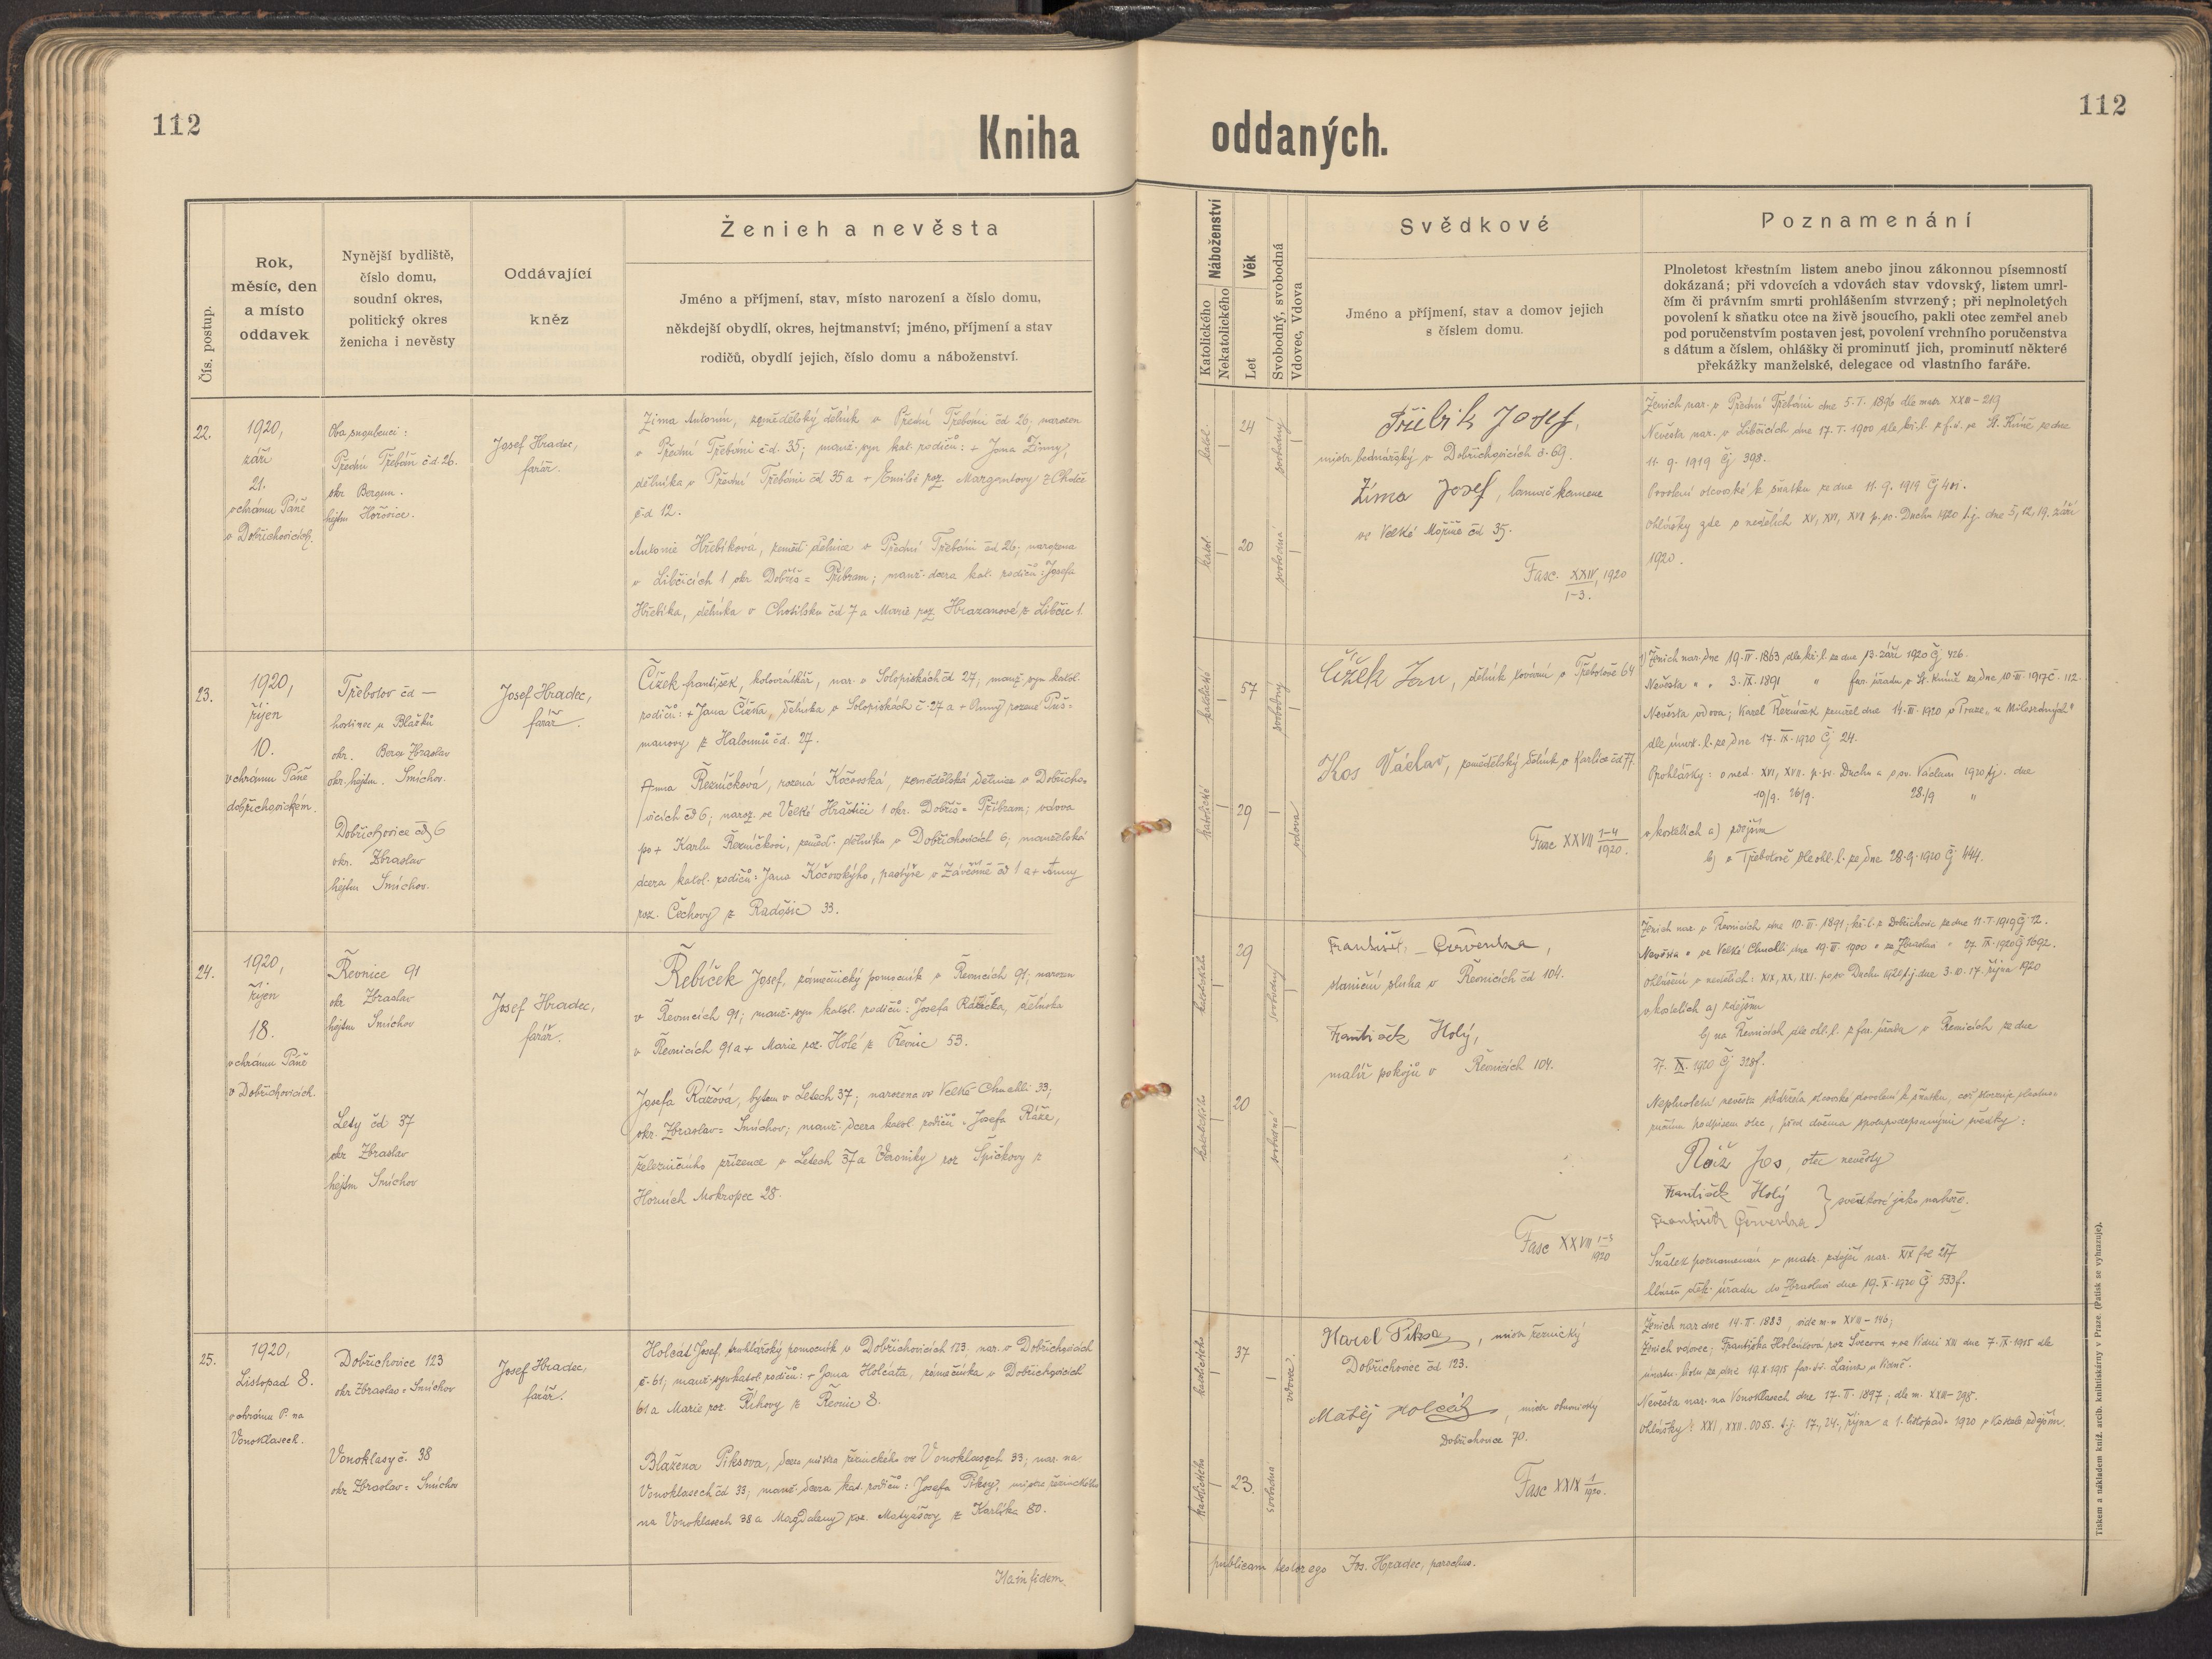 112
Kniha
oddaných.
112
Čís. postup.
Rok,
měsíc, den
a místo
oddavek
Nynější bydliště,
číslo domu,
soudní okres,
politický okres
ženicha i nevěsty
Oddávající
kněz
Ženich a nevěsta
Jméno a příjmení, stav, místo narození a číslo domu,
někdejší obydlí, okres, hejtmanství; jméno, příjmení a stav
rodičů, obydlí jejich, číslo domu a náboženství.
Náboženství
Katolického
Nekatolického
Věk
Let
Svobodný, svobodná
Vdovec, Vdova
Svědkové
Jméno a příjmení, stav a domov jejich
s číslem domu.
Poznamenání
Plnoletost křestním listem anebo jinou zákonnou písemností
dokázaná; při vdovcích a vdovách stav vdovský, listem umrl-
čím či právním smrti prohlášením stvrzený; při neplnoletých
povolení k sňatku otce na živě jsoucího, pakli otec zemřel aneb
pod poručenstvím postaven jest, povolení vrchního poručenstva
s dátum a číslem, ohlášky či prominutí jich, prominutí některé
překážky manželské, delegace od vlastního faráře.
22.
1920,
září
21.
v chrámu Páně
v Dobřichovicích.
Oba snoubenci:
Přední Třebáň čd. 26.
okr. Beroun.
hejtm Hořovice.
Josef Hradec,
farář.
Zima Antonín, zemědělský dělník v Přední Třebáni čd 26; narozen
v Přední Třebáni č.d. 35; manž. syn kat. rodičů: + Jana Zimy,
dělníka v Přední Třebáni čd 35 a + Emilie roz.
č.d 12.
Antonie Hřebíková, zeměď. dělnice v Přední Třebáni čd 26; narozena
v Libčicích 1 okr Dobříš = Příbram; manž. dcera kat. rodičů: Josefa
Hřebíka, dělníka v Chotilsku čd 7 a Marie roz. Hrazanové z Libčic 1.
katol.
24
svobodný
katol
20
svobodná
Josef,
mistr bednářský v Dobřichovicích č. 69.
Zima Josef, lamač kamene
ve Velké Mořině čd 35.
Fasc. XXIV, 1920
1-3.
Ženich nar. v Přední Třebáni dne 5. I. 1896 dle matr. XXII - 219
Nevěsta nar. v Libčicích dne 17. I. 1900 dle kř. l. z f. ú. ve St. Kníně ze dne
11. 9. 1919 čj 398.
Povolení otcovské k sňatku ze dne 11. 9. 1919 čj 401.
Ohlášky zde o nedělích XV, XVI, XVII p. sv. Duchu 1920 t. j. dne 5, 12, 19. září
1920.
23.
1920,
říjen
10.
v chrámu Páně
dobřichovickém.
Třebotov čd —
hostinec u Blažků
okr. Zbraslav
okr. hejtm. Smíchov.
Dobřichovice čd 6
okr. Zbraslav
hejtm Smíchov.
Josef Hradec,
farář.
Čížek František, kolovrátkář, nar. v Solopiskách čd 27; manž. syn katol.
rodičů: + Jana Čížka, dělníka v Solopiskách č. 27 a + Anny rozené
z Halounů čd. 27.
Anna Řezníčková, rozená Kočovská, zemědělská dělnice v Dobřicho-
vicích čd 6; naroz. ve Velké Hraštici 1 okr. Dobříš = Příbram; vdova
po + Karlu Řezníčkovi, zeměď. dělníku v Dobřichovicích 6; manželská
dcera katol. rodičů: Jana Kočovského, pastýře v čd 1 a + Anny
roz. Čechovy z Radošic 33.
katolické
57
svobodný
katolické
29
vdova
Čížek Jan, dělník tovární v Třebotově 64
Kos Václav, zemědělský dělník v Karlíce čd 77.
Fasc XXVII 1-4
1920.
Ženich nar. dne 19. IV. 1863 dle kř. l. ze dne 13. září 1920 čj 426.
Nevěsta " " 3. IX. 1891 " far. úřadu v St. Kníně ze dne 10. III. 1917 č. 112.
Nevěsta vdova; Karel Řezníček zemřel dne 14. III. 1920 v Praze „u Milosrdných"
dle úmrt. l. ze dne 17. IX. 1920 čj 24.
Ohlášky: o ned. XVI, XVII. p. sv. Duchu a o sv. Václavu 1920 t.j. dne
19/9. 26/9. 28/9 "
v kostelích a) zdejším
b) v Třebotově dle ohl. l. ze dne 28. 9. 1920 čj 444.
24.
1920,
říjen
18.
v chrámu Páně
v Dobřichovicích.
Řevnice 91
okr Zbraslav
hejtm Smíchov
Lety čd 37
okr Zbraslav
hejtm Smíchov
Josef Hradec,
farář.
Řebíček Josef, zámečnický pomocník v Řevnicích 91; narozen
v Řevnicích 91; manž. syn katol. rodičů: Josefa, dělníka
v Řevnicích 91 a + Marie roz. Holé z Řevnic 53.
Josefa Rážová, bytem v Letech 37; narozena ve Velké Chuchli 33;
okr. Zbraslav = Smíchov; manž. dcera katol. rodičů: Josefa Ráže,
železničního zřízence v Letech 37 a Veroniky roz Špičkovy z
Horních Mokropec 28.
katolického
29
svobodný
katolického
20
svobodná
František Červenka,
staniční sluha v Řevnicích čd 104.
František Holý,
malíř pokojů v Řevnicích 104.
Fasc XXVII 1-3
1920
Ženich nar. v Řevnicích dne 10. III. 1891; kř. l. z Dobřichovic ze dne 11. I. 1919 čj 12.
Nevěsta " ve Velké Chuchli dne 19. II. 1900 " ze Zbraslavi " 27. IX. 1920 čj 1692.
ohlášeni o nedělích: XIX, XX, XXI. po sv Duchu 1920 t.j dne 3. 10. 17. října 1920
v kostelích a) zdejším
b) na Řevnicích dle ohl. l. z far. úřadu v Řevnicích ze dne
17. X. 1920 čj 328f.
Nepluoletá nevěsta obdržela otcovské povolení k sňatku, což stvrzuje
podpisem otec, před dvěma spolupodepsanými svědky:
Ráž Jos, otec nevěsty
František Holý } svědkové jako nahoře.
František Červenka
Sňatek poznamenán v matr. zdejší nar. XIX fol 217
hlášen děk. úřadu do Zbraslavi dne 19. X. 1920 čj 533f.
25.
1920,
Listopad 8.
v chrámu P. na
Vonoklasech.
Dobřichovice 123
okr Zbraslav = Smíchov
Vonoklasy č. 38
okr Zbraslav = Smíchov
Josef Hradec,
farář.
Holcát Josef, truhlářský pomocník v Dobřichovicích 123, nar. v Dobřichovicích
č. 61; manž. syn katol. rodičů: + Jana Holcáta, zámečníka v Dobřichovicích
61 a Marie roz. Říhovy z Řevnic 8.
Blažena Piksova, dcera mistra řeznického ve Vonoklasech 33; nar. na
Vonoklasech čd 33; manž. dcera kat. rodičů: Josefa Piksy, mistra řeznického
na Vonoklasech 38 a Magdaleny roz. Matyášovy z Karlíka 80.
katolického
37
vdovec
katolického
23.
svobodná
Karel Piksa, mistr řeznický
Dobřichovice čd 123.
Matěj Holcát, mistr obuvnický
Dobřichovice 70.
Fasc XXIX 1
1920.
Ženich nar dne 14. II. 1883, vide m. n XVII - 146;
Ženich vdovec; Františka Holcátová roz Švecova + ve Vídni XII dne 7. IX. 1915 dle
úmrtn. listu ze dne 19. X. 1915 far. sv. Lainz u Vídně.
Nevěsta nar. na Vonoklasech dne 17. II. 1897; dle m. XXII - 298.
Ohlášky: XXI, XXII. OOSS. t. j. 17., 24., října a 1. listopadu 1920 v kostele zdejším.
fidem.
publicam testor ego Jos. Hradec, parochus.
Tiskem a nákladem kníž. arcib. knihtiskárny v Praze. (Patisk se vyhrazuje).